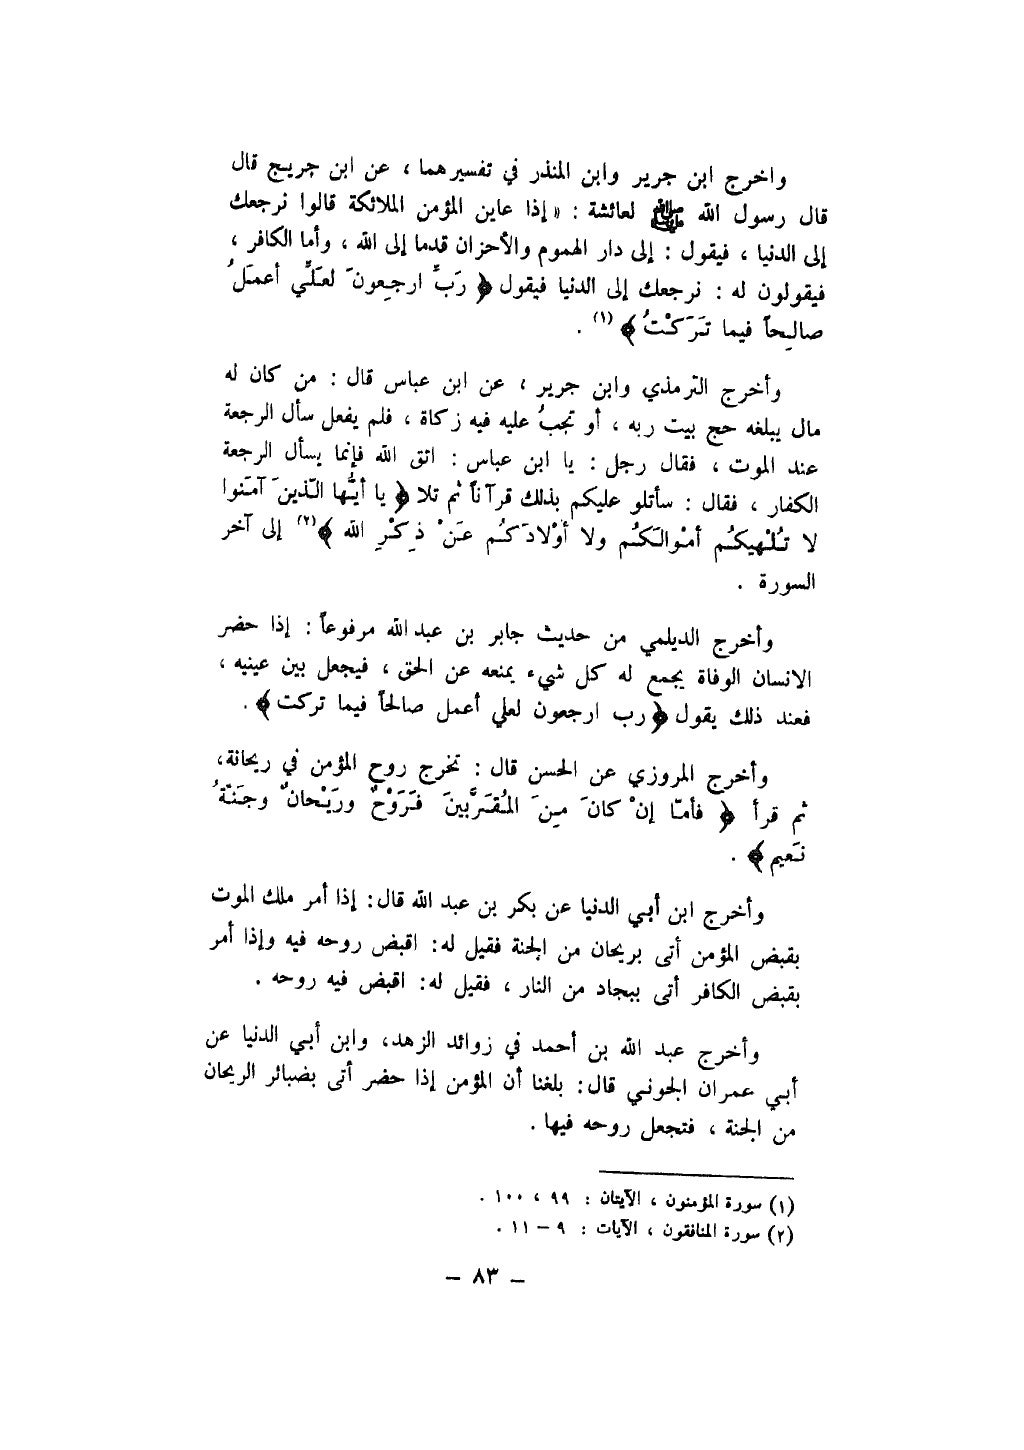 واخرج ابن جرير وابن المنذر في تفسيرهما ، عن ابن جريج قال
قال رسول الله ﷺ لعائشة : « إذا عاين المؤمن الملائكة قالوا نرجعك
إلى الدنيا ، فيقول : إلى دار الهموم والأحزان قدما إلى الله ، وأما الكافر ،
فيقولون له : نرجعك إلى الدنيا فيقول ﴿ رَبِّ ارجِعونَ لعَلِّي أعمَلُ
صالِحاً فيما تَرَكْتُ ﴾ (١) .
وأخرج الترمذي وابن جرير ، عن ابن عباس قال : من كان له
مال يبلغه حج بيت ربه ، أو تجبُ عليه فيه زكاة ، فلم يفعل سأل الرجعة
عند الموت ، فقال رجل : يا ابن عباس : اتق الله فإنما يسأل الرجعة
الكفار ، فقال : سأتلو عليكم بذلك قرآناً ثم تلا ﴿ يا أيُّها الّذينَ آمَنوا
لا تُلْهيكُم أمْوالَكُم ولا أوْلادَكُم عَنْ ذِكْرِ الله ﴾(٢) إلى آخر
السورة .
وأخرج الديلمي من حديث جابر بن عبد الله مرفوعاً : إذا حضر
الانسان الوفاة يجمع له كل شيء يمنعه عن الحق ، فيجعل بين عينيه ،
فعند ذلك يقول ﴿ رب ارجعون لعلي أعمل صالحاً فيما تركت ﴾ .
وأخرج المروزي عن الحسن قال : تخرج روح المؤمن في ريحانة،
ثم قرأ ﴿ فأمّا إنْ كانَ مِنَ المُقَرَّبينَ فَرَوْحٌ ورَيْحانٌ وجَنّةُ
نَعيم ﴾ .
وأخرج ابن أبي الدنيا عن بكر بن عبد الله قال: إذا أمر ملك الموت
بقبض المؤمن أتى بريحان من الجنة فقيل له: اقبض روحه فيه وإذا أمر
بقبض الكافر أتى ببجاد من النار ، فقيل له: اقبض فيه روحه .
وأخرج عبد الله بن أحمد في زوائد الزهد، وابن أبي الدنيا عن
أبي عمران الجوني قال: بلغنا أن المؤمن إذا حضر أتى بضبائر الريحان
من الجنة ، فتجعل روحه فيها .
(١) سورة المؤمنون ، الآيتان : ٩٩ ، ١٠٠ .
(٢) سورة المنافقون ، الآيات : ٩ – ١١ .
– ٨٣ –